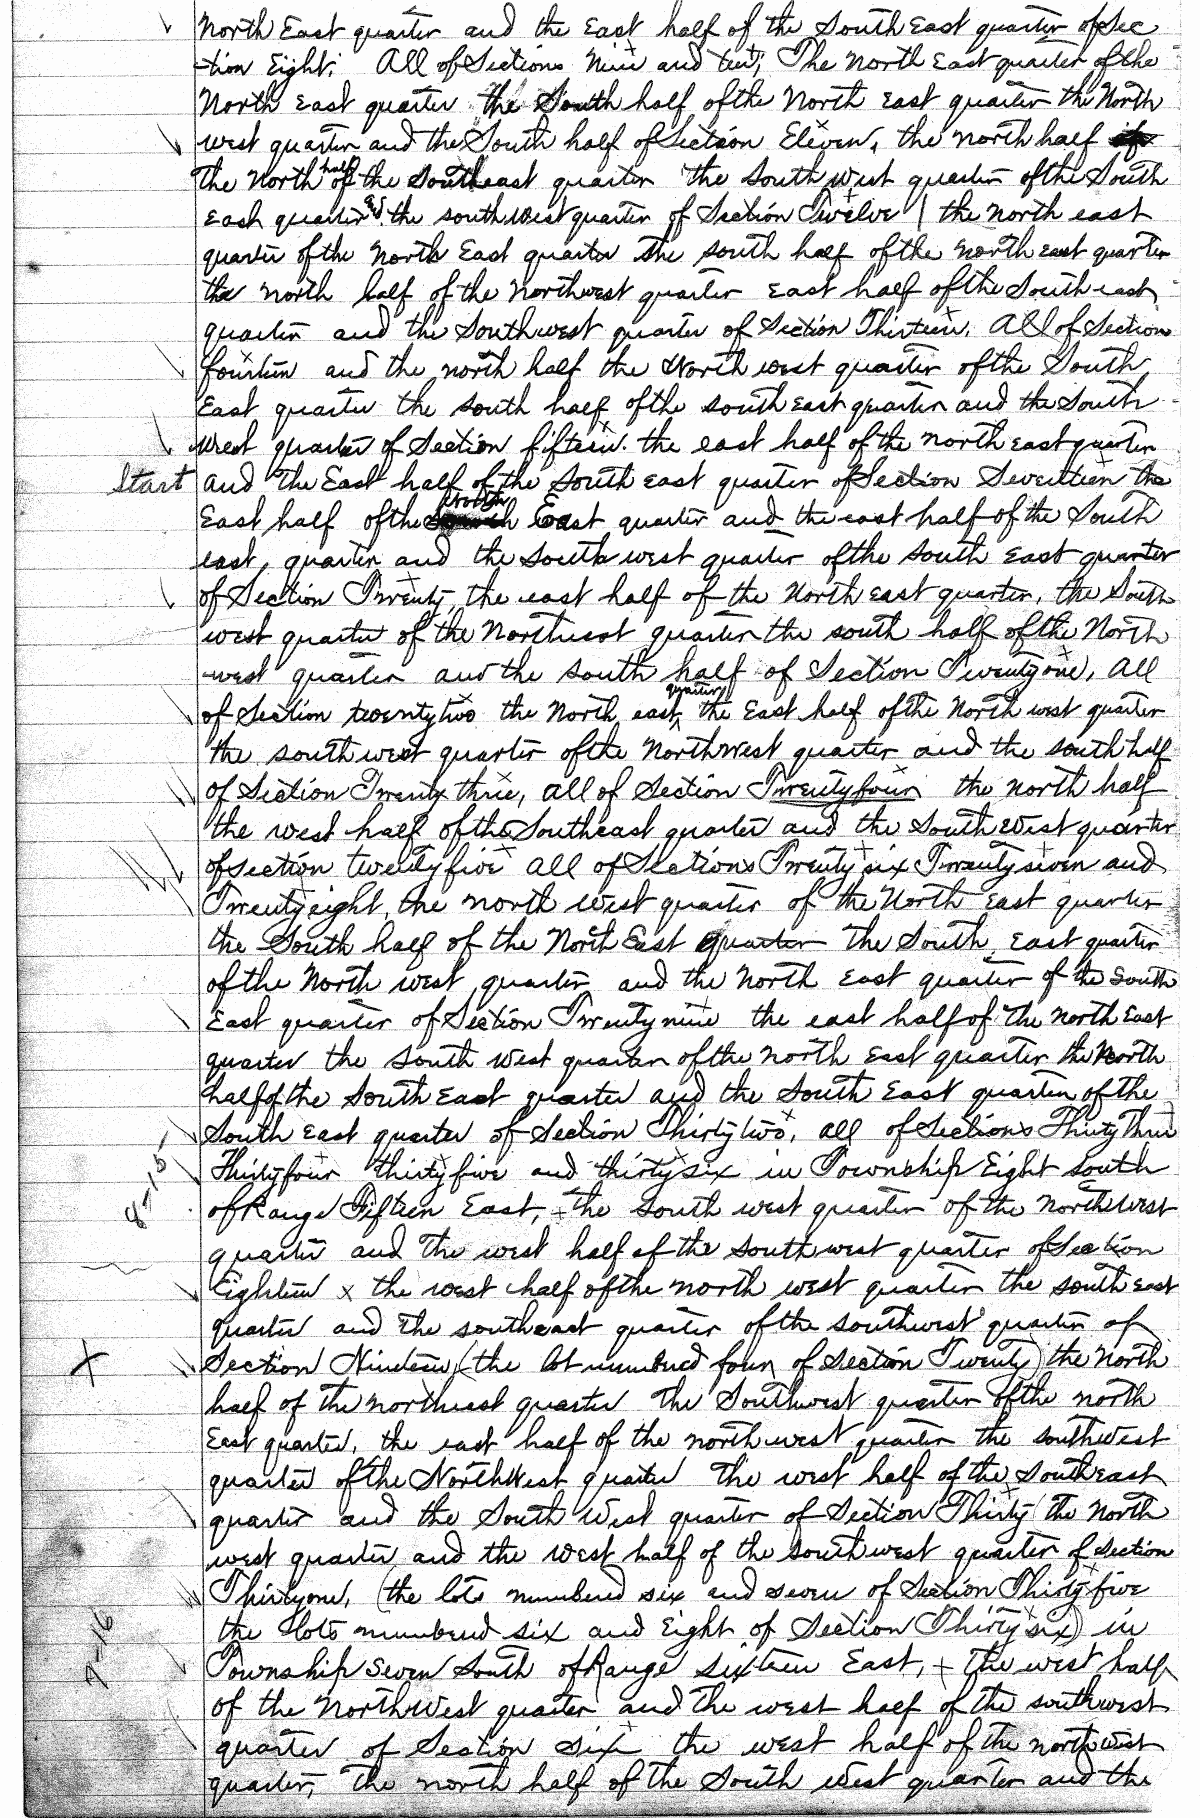 North East quarter and the East half of the South East quarter of Sec
-tion Eight; All of Sections Nine and ten; The North East quarter of the
North East quarter the South half of the North East quarter the North
west quarter and the South half of Section Eleven, the north half
the North half of the Southeast quarter the south west quarter of the South
East quarter and the southwest quarter of Section Twelve / the north east
quarter of the North East quarter the south half of the north east quarter
the north half of the Northwest quarter East half of the South east
quarter and the Southwest quarter of Section Thirteen. All of Section
fourteen and the north half the North west quarter of the South
East quarter the south half of the south east quarter and the South
west quarter of Section fifteen. the east half of the north east quarter
Start and the East half of the South east quarter of Section Seventeen the
East half of the North East quarter and the east half of the South
east, quarter and the South west quarter of the South East quarter
of Section Twenty, the east half of the North east quarter, the South
west quarter of the Northeast quarter the south half of the North
-west quarter and the south half of Section Twentyone, All
of Section twentytwo the North east quarter, the East half of the North west quarter
the southwest quarter of the Northwest quarter and the south half
of Section Twenty three, all of Section Twentyfour the north half
the west half of the Southeast quarter and the South West quarter
of section twentyfive all of Sections Twenty six Twenty seven and
Twenty eight, the north west quarter of the North East quarter
the South half of the North East quarter the South East quarter
of the North west quarter and the North East quarter of the South
East quarter of Section Twenty nine the east half of the North East
quarter the South West quarter of the north East quarter the North
half of the South East quarter and the South East quarter of the
South East quarter of Section Thirty two, all of Sections Thirty Three
8-15 Thirtyfour thirtyfive and thirtysix in Township Eight South
of Range Fifteen East, + the South west quarter of the northwest
quarter and the west half of the Southwest quarter of Section
Eighteen x the west half of the north west quarter the south east
quarter and the southeast quarter of the southwest quarter of
X Section Nineteen (the lot numbered four of Section Twenty) the North
half of the northeast quarter the Southwest quarter of the north
East quarter, the east half of the northwest quarter the southwest
quarter of the NorthWest quarter the west half of the Southeast
quarter and the South West quarter of Section Thirty / the North
west quarter and the west half of the Southwest quarter of Section
Thirtyone, (the lots numbered six and seven of Section Thirtyfive
7-16 the lots numbered six and Eight of Section Thirty six) in
Township Seven South of Range sixteen East, + The west half
of the NorthWest quarter and the west half of the southwest
quarter of Section six the west half of the northwest
quarter, the north half of the South West quarter and the